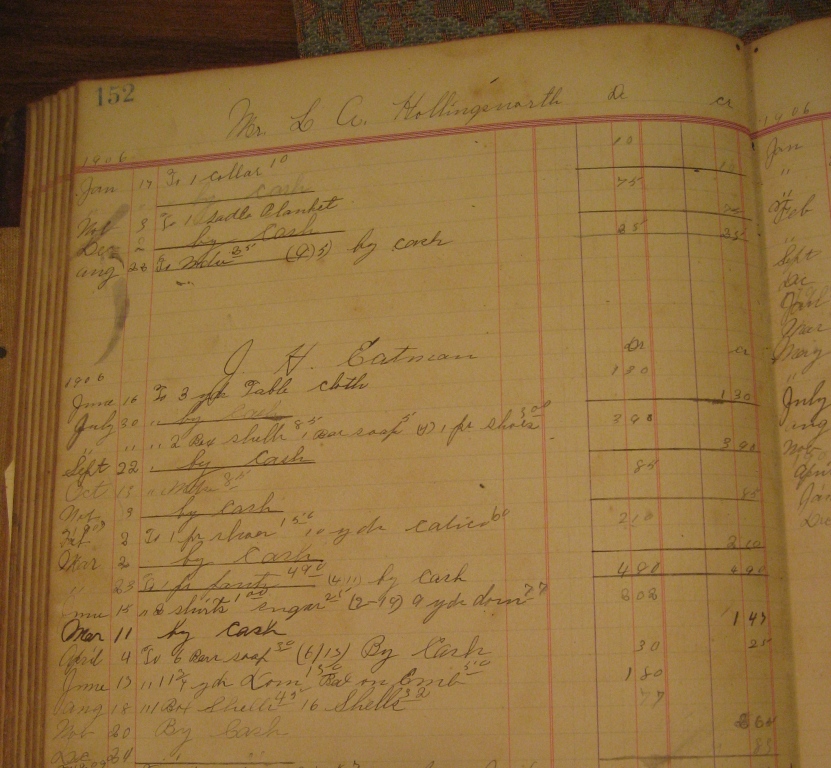 152
Mr. L A. Hollingsworth Dr cr
1906
Jan 17 To 1 collar 10 10
by Cash 10
Nov 3 To 1 Sadle Blanket 75
Dec 2 by Cash 75
Aug 28 To Mdse 25 by cash 25 25
J. H. Eatman Dr cr
1906
June 16 To 3 yds Table cloth 130
July 30 " by cash 130
" " " 2 Box shells 85 1 Bar soap 5 1 pr shoes 300 390
Sept 22 " by Cash 390
Oct 13 " Mdse 85 85
Nov 3 by Cash 85
Feb 2 To 1 pr shoes 150 10 yds calico 60 210
Mar 2 by Cash 210
" 23 To 1 pr pants 490 (4/1) by Cash 490 490
June 15 " 2 shirts 100 sugar 25 (2-99) 9 yds dom 77 202
Mar 11 by Cash 147
April 4 To 6 Bar soap 30 (6/13) By Cash 30 25
June 13 " 11 yds Dom on Emb 50 180
Aug 18 " 1 Box Shells 45 16 Shells 32 77
Nov 20 By Cash 264
Dec 24 " " 83
1906
Jan
"
Feb
"
Sept
Dec
April
Mar
May
"
July
Aug
Nov
Jan
Dec